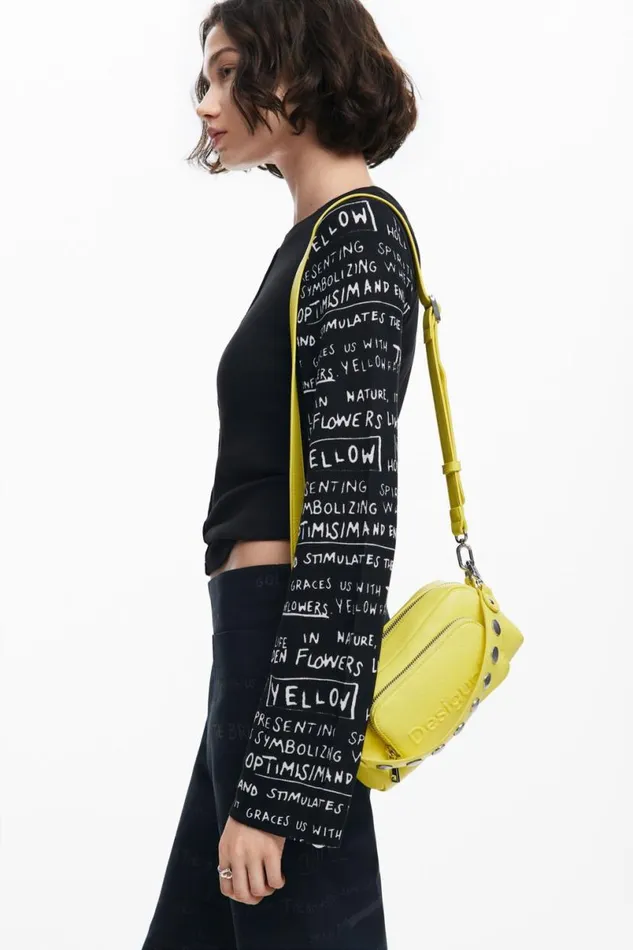 ELLOW
HOL
ESENTING SPIRIT
SYMBOLIZING WHET
OPTIMISIM AND EN
AND STIMULATES THE
CES US WITH T
ERS. YELLOW
IN NATURE, IT
FLOWERS LI
ELLOW
HO
SENTING SPI
MBOLIZING W
PTIMISIM AND EN
D STIMULATES THE
GRACES US WITH
FLOWERS. YELLOW
LIFE IN NATURE,
DEN FLOWERS L
YELLOW
PRESENTING SP
SYMBOLIZING W
OPTIMISIM AND
AND STIMULATES
IT GRACES US WITH
Desigual